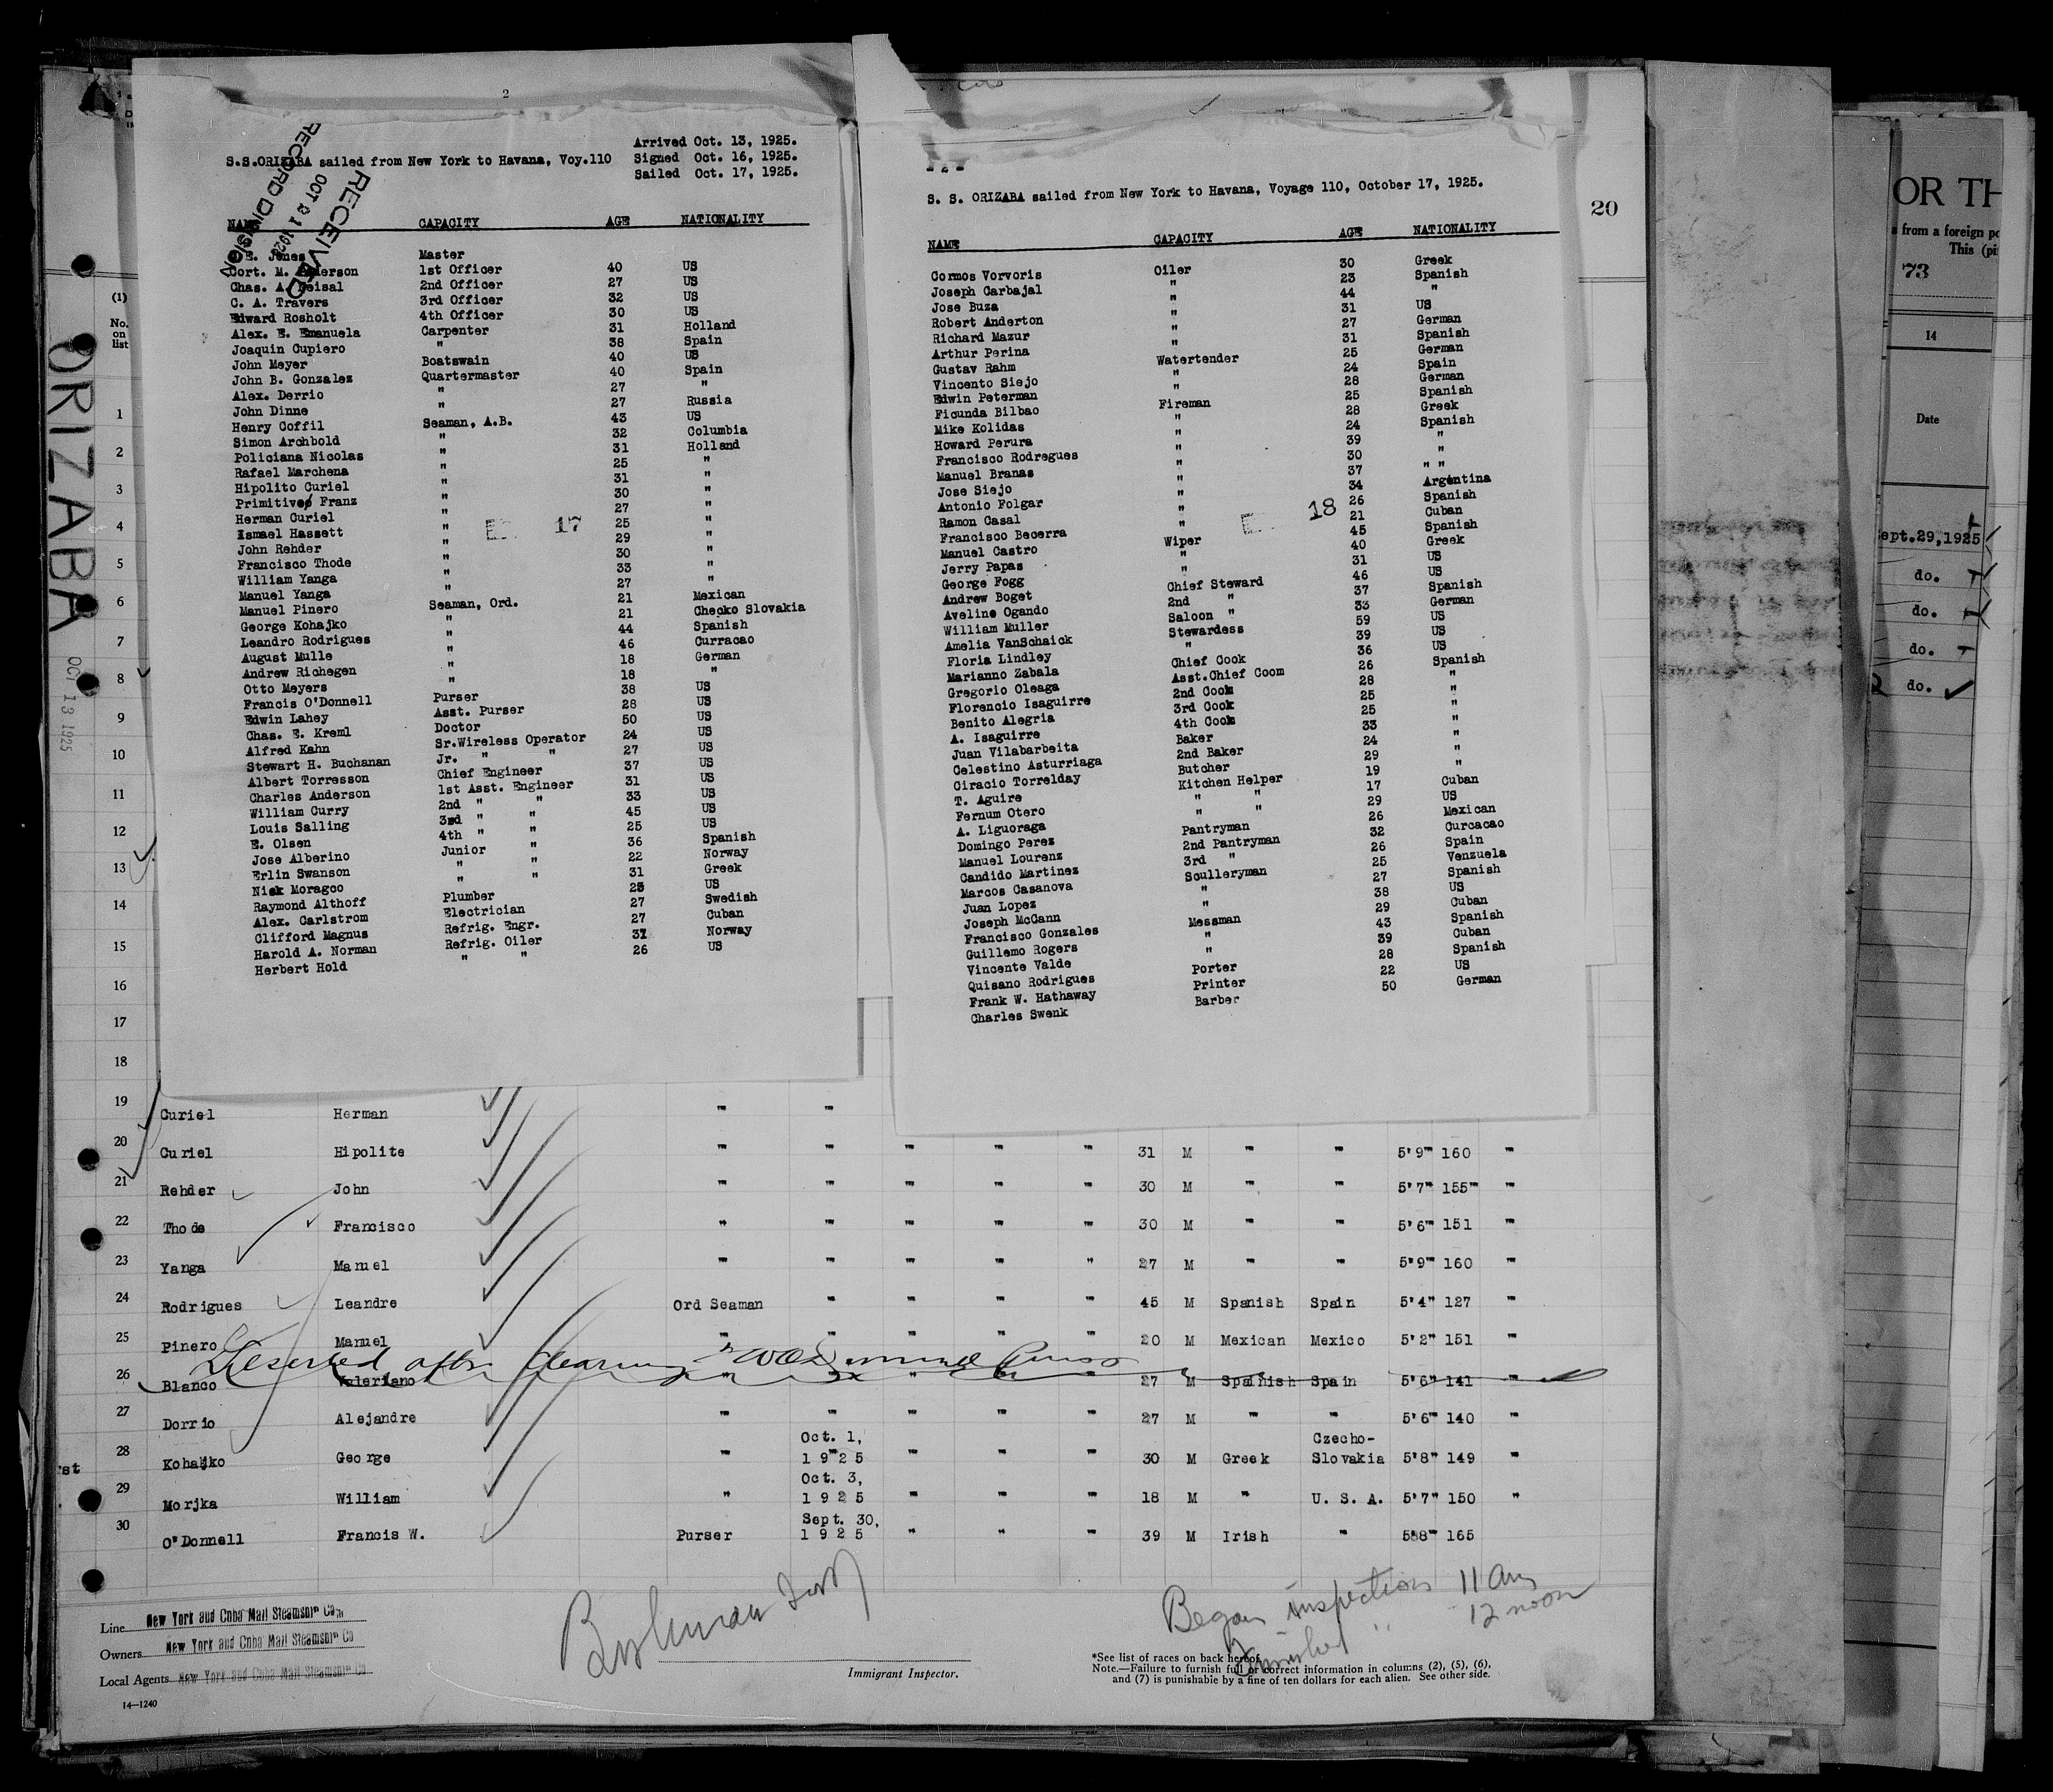 2
Arrived Oct. 13, 1925.
S.S.ORIZABA sailed from New York to Havana, Voy.110 Signed Oct. 16, 1925.
Sailed Oct. 17, 1925.
RECEIVED
OCT 21 1925
RECORD DIVISION
NAME CAPACITY AGE NATIONALITY
E. Jones Master
Cort. M. Anderson 1st Officer 40 US
Chas. A. Heisal 2nd Officer 27 US
C. A. Travers 3rd Officer 32 US
Edward Rosholt 4th Officer 30 US
Alex. E. Emanuela Carpenter 31 Holland
Joaquin Cupiero " 38 Spain
John Meyer Boatswain 40 US
John B. Gonzalez Quartermaster 40 Spain
Alex. Derrio " 27 "
John Dinne " 27 Russia
Henry Coffil Seaman, A.B. 43 US
Simon Archbold " 32 Columbia
Policiana Nicolas " 31 Holland
Rafael Marchena " 25 "
Hipolito Curiel " 31 "
Primitivo Franz " 30 "
Herman Curiel " 27 "
Ismael Hassett " 25 "
John Rehder " 29 "
Francisco Thode " 30 "
William Yanga " 33 "
Manuel Yanga " 27 "
Manuel Pinero Seaman, Ord. 21 Mexican
George Kohajko " 21 Checko Slovakia
Leandro Rodrigues " 44 Spanish
August Mulle " 46 Curracao
Andrew Richegen " 18 German
Otto Meyers " 18 "
Francis O'Donnell Purser 38 US
Edwin Lahey Asst. Purser 28 US
Chas. E. Kreml Doctor 50 US
Alfred Kahn Sr.Wireless Operator 24 US
Stewart H. Buchanan Jr. " " 27 US
Albert Torresson Chief Engineer 37 US
Charles Anderson 1st Asst. Engineer 31 US
William Curry 2nd " " 33 US
Louis Salling 3rd " " 45 US
E. Olsen 4th " " 25 US
Jose Alberino Junior " 36 Spanish
Erlin Swanson " " 22 Norway
Nick Moragco " " 31 Greek
Raymond Althoff Plumber 25 US
Alex. Carlstrom Electrician 27 Swedish
Clifford Magnus Refrig. Engr. 27 Cuban
Harold A. Norman Refrig. Oiler 31 Norway
Herbert Hold " " 26 US
17
- 2 -
S. S. ORIZABA sailed from New York to Havana, Voyage 110, October 17, 1925.
NAME CAPACITY AGE NATIONALITY
Cormos Vorvoris Oiler 30 Greek
Joseph Carbajal " 23 Spanish
Jose Buza " 44 "
Robert Anderton " 31 US
Richard Mazur " 27 German
Arthur Perina " 31 Spanish
Gustav Rahm Watertender 25 German
Vincento Siejo " 24 Spain
Edwin Peterman " 28 German
Ficunda Bilbao Fireman 25 Spanish
Mike Kolidas " 28 Greek
Howard Perura " 24 Spanish
Francisco Rodregues " 39 "
Manuel Branas " 30 "
Jose Siejo " 37 " "
Antonio Folgar " 34 Argentina
Ramon Casal " 26 Spanish
Francisco Becerra " 21 Cuban
Manuel Castro Wiper 45 Spanish
Jerry Papas " 40 Greek
George Fogg " 31 US
Andrew Boget Chief Steward 46 US
Aveline Ogando 2nd " 37 Spanish
William Muller Saloon " 33 German
Amelia VanSchaick Stewardess 59 US
Floria Lindley " 39 US
Marianno Zabala Chief Cook 36 US
Gregorio Oleaga Asst.Chief Coom 26 Spanish
Florencio Isaguirre 2nd Cook 28 "
Benito Alegria 3rd Cook 25 "
A. Isaguirre 4th Cook 25 "
Juan Vilabarbeita Baker 33 "
Celestino Asturriaga 2nd Baker 24 "
Ciracio Torrelday Butcher 29 "
T. Aguire Kitchen Helper 19 "
Fernum Otero " " 17 Cuban
A. Liguoraga " " 29 US
Domingo Perez Pantryman 26 Mexican
Manuel Lourenz 2nd Pantryman 32 Curcacao
Candido Martinez 3rd " 26 Spain
Marcos Casanova Sculleryman 25 Venzuela
Juan Lopez " 27 Spanish
Joseph McCann " 38 US
Francisco Gonzales Messman 29 Cuban
Guillemo Rogers " 43 Spanish
Vincente Valde " 39 Cuban
Quisano Rodrigues Porter 28 Spanish
Frank W. Hathaway Printer 22 US
Charles Swenk Barber 50 German
18
20
ORIZABA
OCT 13 1925
(1)
No.
on
list
1
2
3
4
5
6
7
8
9
10
11
12
13
14
15
16
17
18
19 Curiel Herman " "
20 Curiel Hipolite " " " " " 31 M " " 5'9" 160 "
21 Rehder John " " " " " 30 M " " 5'7" 155" "
22 Thode Francisco " " " " " 30 M " " 5'6" 151 "
23 Yanga Manuel " " " " " 27 M " " 5'9" 160 "
24 Rodrigues Leandre Ord Seaman " " " " 45 M Spanish Spain 5'4" 127 "
25 Pinero Manuel " " " " " 20 M Mexican Mexico 5'2" 151 "
Deserted after clearing
26 Blanco Valeriano " " " 27 M Spanish Spain 5'6" 141 "
27 Dorrio Alejandre " " " " " 27 M " " 5'6" 140 "
28 Kohajko George " Oct. 1, 1925 " " " 30 M Greek Czecho-Slovakia 5'8" 149 "
29 Morjka William " Oct. 3, 1925 " " " 18 M " U. S. A. 5'7" 150 "
30 O'Donnell Francis W. Purser Sept. 30, 1925 " " " 39 M Irish " 5'8" 165
st
Line New York and Cuba Mail Steamship Co.
Owners New York and Cuba Mail Steamship Co
Local Agents New York and Cuba Mail Steamship Co
14—1240
Immigrant Inspector.
Began inspection 11 am
Finished " 12 noon
*See list of races on back hereof.
Note.—Failure to furnish full or correct information in columns (2), (5), (6),
and (7) is punishable by a fine of ten dollars for each alien. See other side.
OR TH
from a foreign po
This (pi
73
14
Date
Sept.29,1925
do.
do.
do.
do.